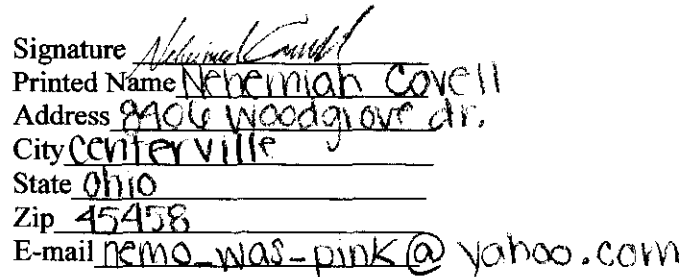 Signature Nehemiah Covell
Printed Name Nehemiah Covell
Address 8406 Woodgrove dr.
City Centerville
State Ohio
Zip 45458
E-mail nemo_was_pink@yahoo.com